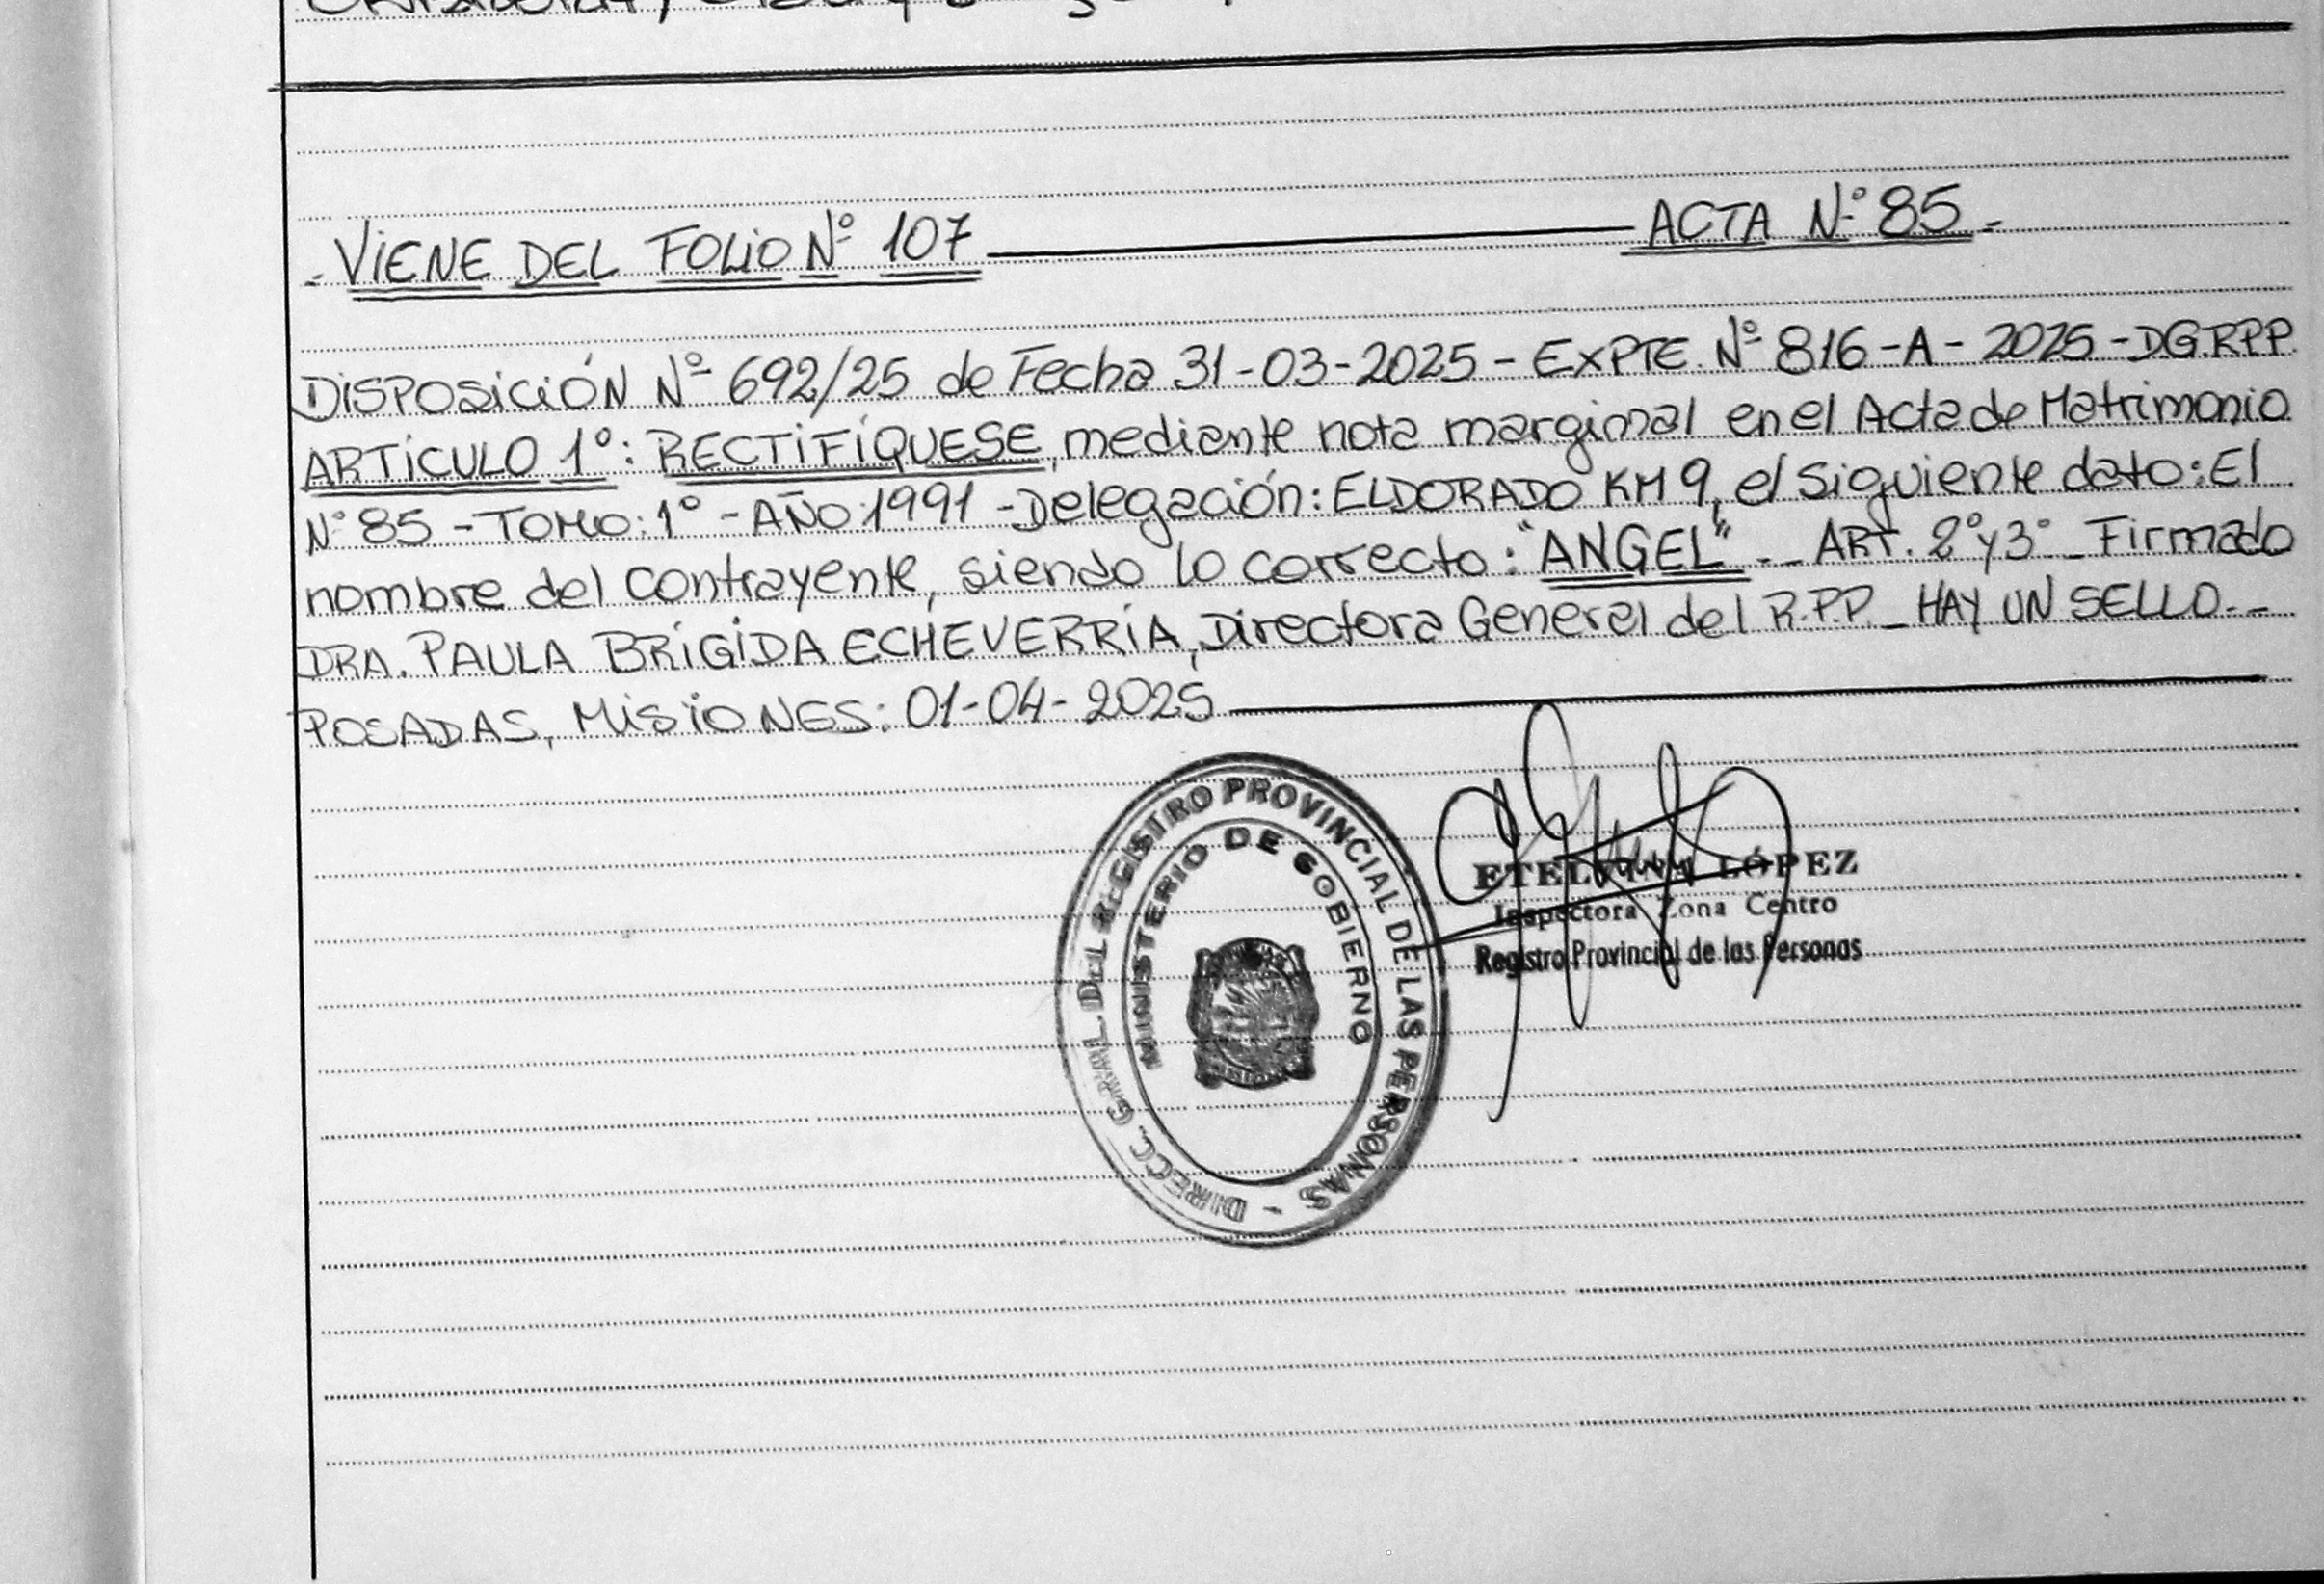 - VIENE DEL FOLIO Nº 107 ACTA Nº 85 -
DISPOSICIÓN Nº 692/25 de Fecha 31-03-2025 - EXPTE. Nº 816-A-2025-DG.RPP.
ARTÍCULO 1º: RECTIFÍQUESE, mediante nota marginal en el Acta de Matrimonio
Nº 85 - TOMO: 1º - AÑO: 1991 - Delegación: ELDORADO KM 9, el siguiente dato: El
nombre del contrayente, siendo lo correcto: "ANGEL" -_ ART. 2º y 3º _ Firmado
DRA. PAULA BRÍGIDA ECHEVERRÍA, Directora General del R.P.P. _ HAY UN SELLO.-
POSADAS, MISIONES: 01-04-2025
DIRECC. GRAL. DEL REGISTRO PROVINCIAL DE LAS PERSONAS -
MINISTERIO DE GOBIERNO
ETELVINA LÓPEZ
Inspectora Zona Centro
Registro Provincial de las Personas